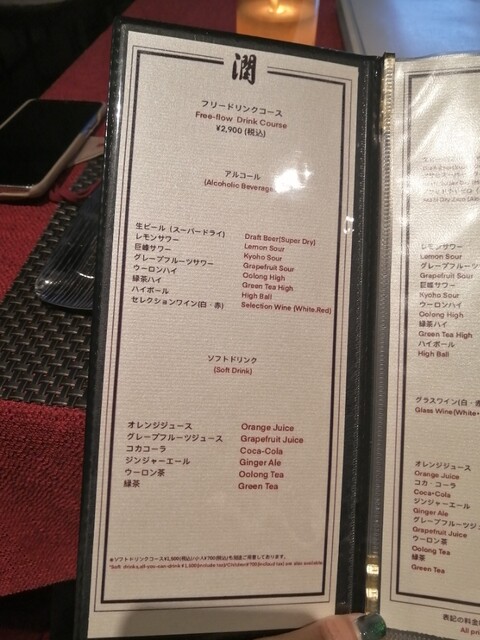 潤
フリードリンクコース
Free-flow Drink Course
¥2,900 (税込)
アルコール
(Alcoholic Beverage
生ビール (スーパードライ) Draft Beer(Super Dry)
レモンサワー Lemon Sour
巨峰サワー Kyoho Sour
グレープフルーツサワー Grapefruit Sour
ウーロンハイ Oolong High
緑茶ハイ Green Tea High
ハイボール High Ball
セレクションワイン(白・赤) Selection Wine (White,Red)
ソフトドリンク
(Soft Drink)
オレンジジュース Orange Juice
グレープフルーツジュース Grapefruit Juice
コカコーラ Coca-Cola
ジンジャーエール Ginger Ale
ウーロン茶 Oolong Tea
緑茶 Green Tea
レモンサワー
Lemon Sour
グレープフルーツ
Grapefruit Sour
巨峰サワー
Kyoho Sour
ウーロンハイ
Oolong High
緑茶ハイ
Green Tea High
ハイボール
High Ball
グラスワイン(白・赤
Glass Wine(White
オレンジジュース
Orange Juice
コカ・コーラ
Coca•Cola
ジンジャーエール
Ginger Ale
グレープフルーツジュ
Grapefruit Juice
ウーロン茶
Oolong Tea
緑茶
Green Tea
表記の料金
All